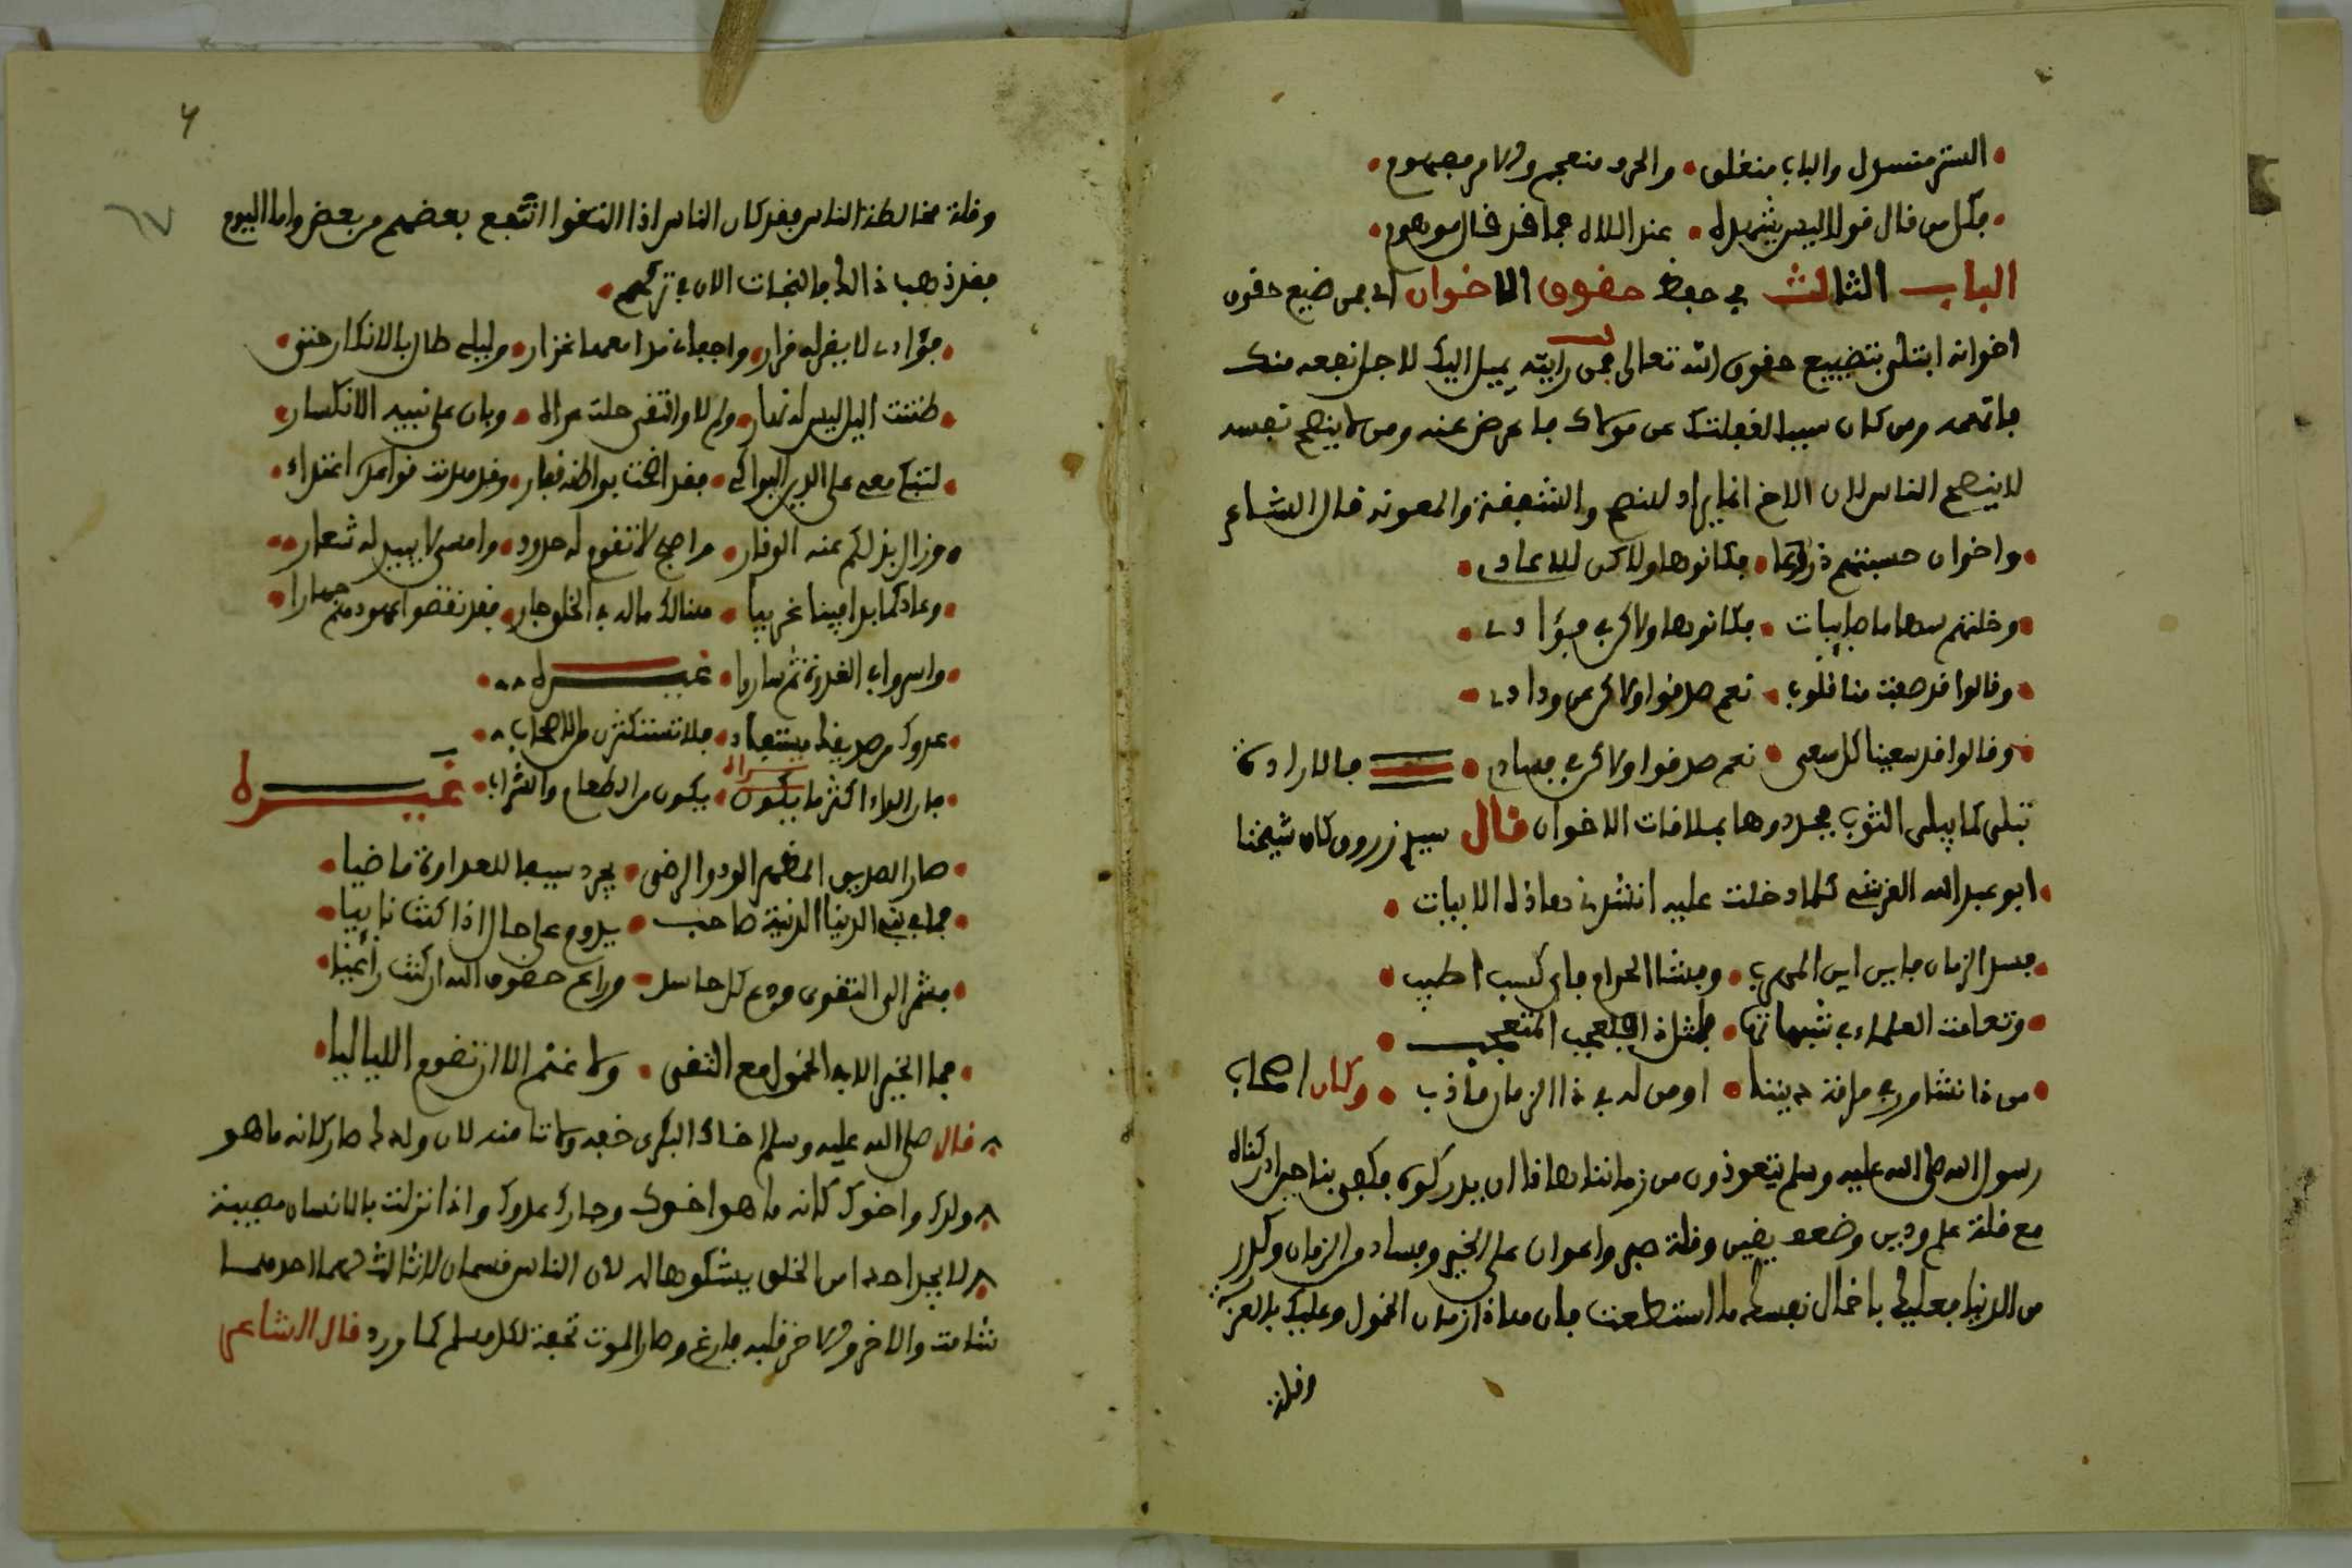 الستر منسدل والباب منغلق • والحرد منعجم والامر مبهوم •
فكل من قال قولا ليس يشهد له • عند اللاله فما قد قال موهوم •
الباب الثالث في حفظ حقوق الاخوان اي فمن ضيع حقوق
اخوانه ابتلى بتضييع حقوق الله تعالى فمن رايته يميل اليك لاجل نفعه منك
فاتهمه ومن كان سببا لغفلتك عن مولاك فاعرض عنه ومن لا ينصح نفسه
لا ينصح الناس لان الاخ انما يراد للنصح والشفقة والمعونة قال الشاعر
• واخوان حسبتهم دروعا • فكانوها ولاكن للاعادي •
• وخلتهم سهاما صايبات • فكانوها ولاكن في فؤادي •
• وقالوا قد صفت منا قلوب • نعم صدقوا ولاكن عن ودادي •
• وقالوا قد سعينا كل سعي • نعم صدقوا ولاكن في فسادي • فالارادة
تبلى كما يبلى الثوب فجددوها بملاقات الاخوان قال سيدي زروق كان شيخنا
ابو عبد الله القرشي كلما دخلت عليه انشدني هاذه الابيات •
• فسد الزمان فاين اين المهرب • وفشا الحرام فاي كسب اطيب •
• وتعامت العلماء في شبهاتها • فلمثل ذا فليعجب المتعجب •
• من ذا نشاور في ملاقة ديننا • او من له في ذا الزمان مأذب • وكان اصحاب
رسول الله صلى الله عليه وسلم يتعوذون من زماننا هاذا ان يدركوه فكيف بنا حين ادركناه
مع قلة علم ودين وضعف يقين وقلة صبر واعوان على الخير وفساد من الزمان وكدر
من الدنيا فعليك باخمال نفسك ما استطعت فان هاذا زمان الخمول وعليك بالعزلة
وقلة
٦
وقلة مخالطة الناس فقد كان الناس اذا التقوا انتفع بعضهم من بعض واما اليوم
فقد ذهب ذالك فالنجات الان في تركهم •
• فؤادي لا يقر له قرار • واجفاني مدامعها غزار • وليلي طال بالانكار حتى •
• ظننت اليل ليس له نهار • ولم لا والتقى حلت عراه • وبان على نبيه الانكسار •
• لتبك معي على الدين البواكي • فقد اضحت مواطنه قفار • وقد هدت قواعده اعتداء •
• وزال بذلكم عنه الوقار • واصبح لا تقوم له حدود • وامسى لا يبين له شعار •
• وعاد كما بدا فينا غريبا • هنالك ماله في الخلق جار • فقد نقضوا عهودهم جهارا •
• واسروا في الغدوة ثم ساروا • غيره
• عدوك من صديقك مستفاد • فلا تستكثرن من الاصحاب •
• فان الداء اكثر ما تراه • يكون من الطعام والشراب • غيره
• صار الصديق المظهر الود والرضى • يجرد سيفا للعداوة ماضيا •
• فما في بني الدنيا الدنية صاحب • يدوم على حال اذا كنت نابيا •
• فشمر الى التقوى ودع كل حاسد • وراع حقوق الله ان كنت راعيا •
• فما الخير الا في الخمول مع التقى • ولا غنم الا ان تقوم اللياليا •
قال صلى الله عليه وسلم اخاك البكري خفه ولا تامنه لان ولدك صار كانه ما هو
ولدك واخوك كانه ما هو اخوك وجارك عدوك واذا نزلت بالانسان مصيبة
لا يجد احدا من الخلق يشكوها له لان الناس قسمان لا ثالث لهما احدهما
شامت والاخر قلبه فارغ وصار الموت تحفة لكل مسلم كما ورد قال الشاعر